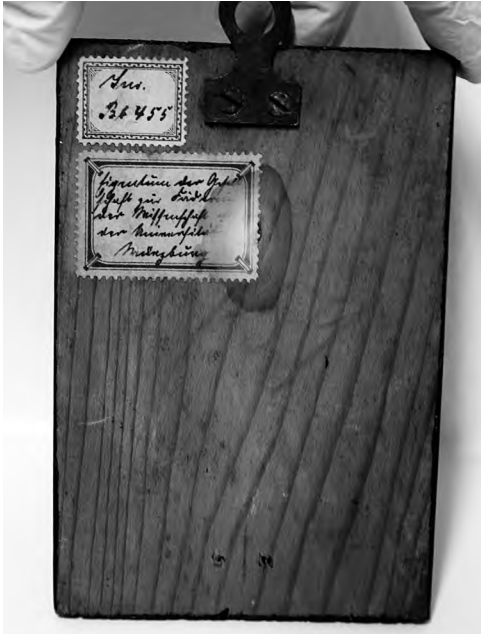 Inv.
Bb 455
Eigentum der Gesell
schaft zur Förderu
der Wissenschaft
der Universität
Würzburg